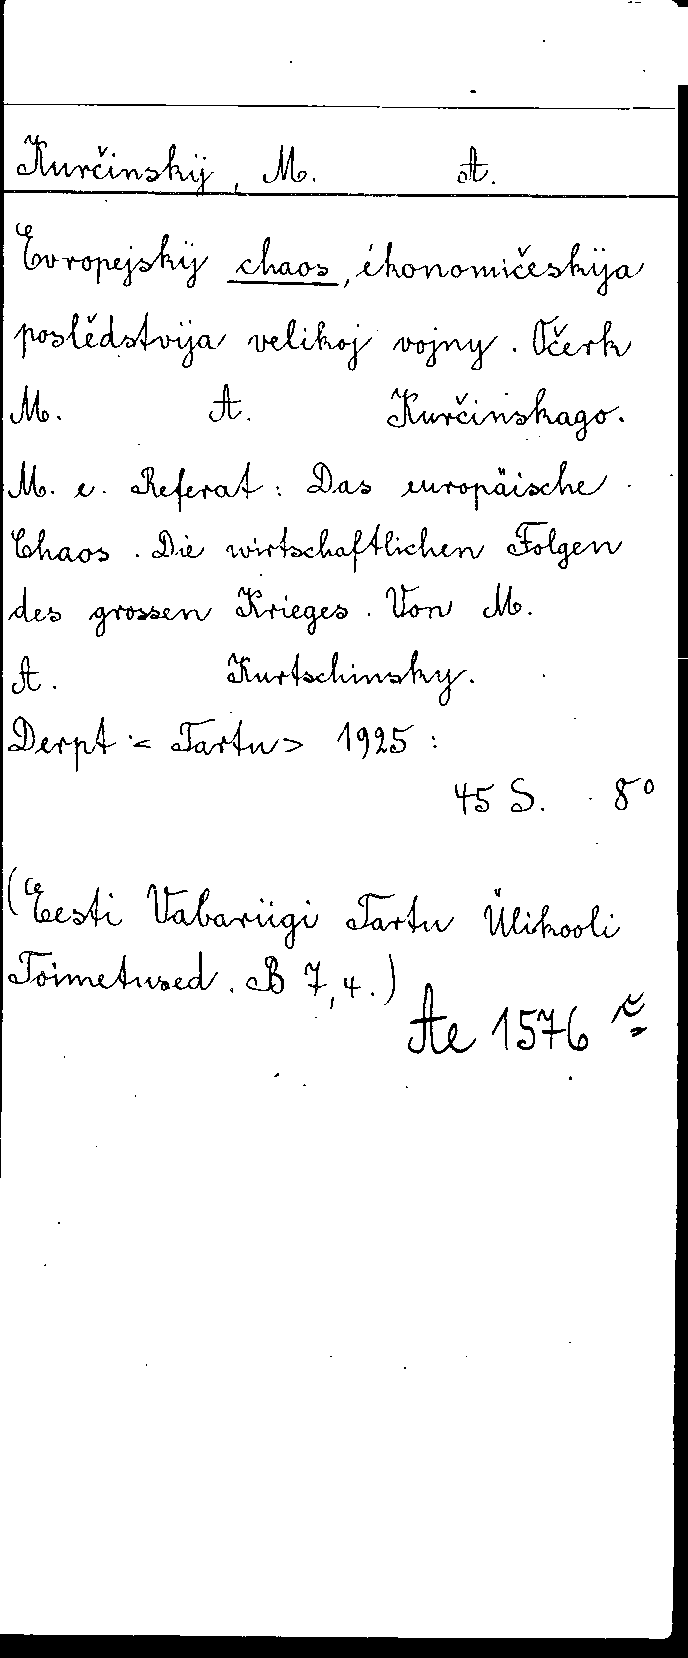 Kurčinskij, M. A.
Evropejskij chaos, ėkonomičeskija
poslědstvija velikoj vojny. Očerk
M. A. Kurčinskago.
M. e. Referat: Das europäische
Chaos. Die wirtschaftlichen Folgen
des grossen Krieges. Von M.
A. Kurtschinsky.
Derpt <Tartu> 1925:
45 S. 8°
(Eesti Vabariigi Tartu Ülikooli
Toimetused. B 7,4.)
Ae 1576